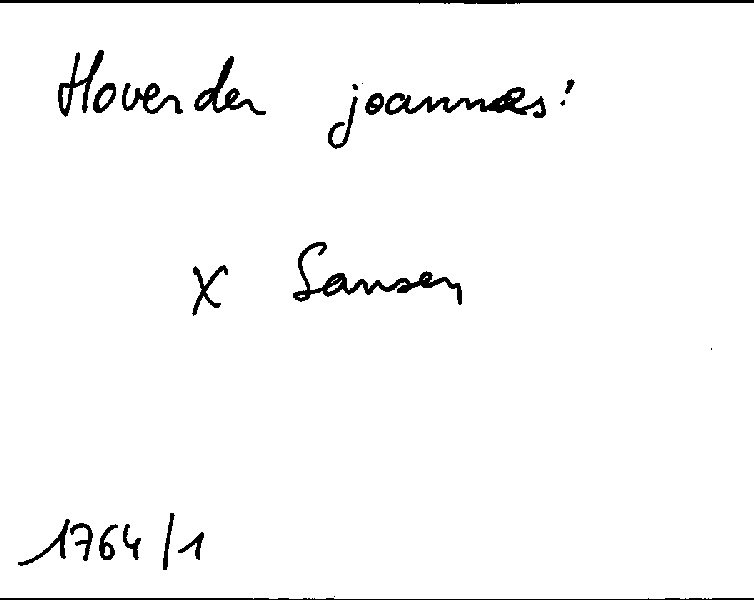 Hoverder joannes!
X Sansen
1764/1